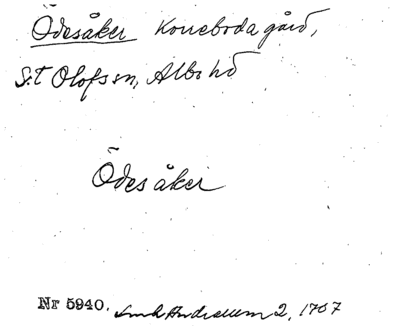 Ödesåker Koneboda gård,
S:t Olofs sn, Albo hd
Ödesåker
Nr 5940. Andrarum 2, 1707